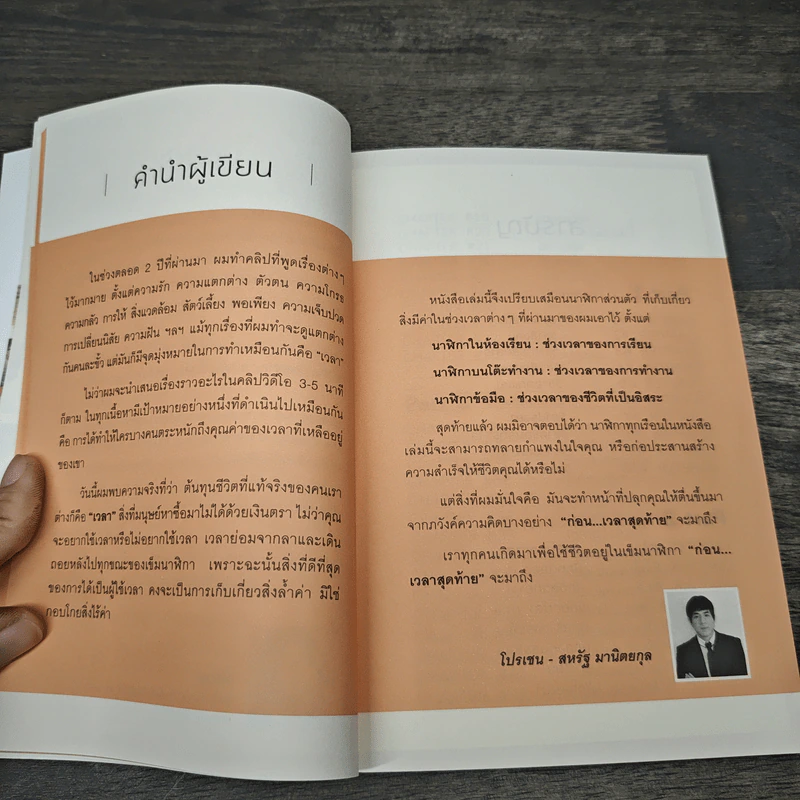 คำนำผู้เขียน
ในช่วงตลอด 2 ปีที่ผ่านมา ผมทำคลิปที่พูดเรื่องต่างๆ
ไว้มากมาย ตั้งแต่ความรัก ความแตกต่าง ตัวตน ความโกรธ
ความกลัว การให้ สิ่งแวดล้อม สัตว์เลี้ยง พอเพียง ความเจ็บปวด
การเปลี่ยนนิสัย ความฝัน ฯลฯ แม้ทุกเรื่องที่ผมทำจะดูแตกต่าง
กันคนละขั้ว แต่มันก็มีจุดมุ่งหมายในการทำเหมือนกันคือ “เวลา”
ไม่ว่าผมจะนำเสนอเรื่องราวอะไรในคลิปวิดีโอ 3-5 นาที
ก็ตาม ในทุกเนื้อหามีเป้าหมายอย่างหนึ่งที่ดำเนินไปเหมือนกัน
คือ การได้ทำให้ใครบางคนตระหนักถึงคุณค่าของเวลาที่เหลืออยู่
ของเขา
วันนี้ผมพบความจริงที่ว่า ต้นทุนชีวิตที่แท้จริงของคนเรา
ต่างก็คือ “เวลา” สิ่งที่มนุษย์หาซื้อมาไม่ได้ด้วยเงินตรา ไม่ว่าคุณ
จะอยากใช้เวลาหรือไม่อยากใช้เวลา เวลาย่อมจากลาและเดิน
ถอยหลังไปทุกขณะของเข็มนาฬิกา เพราะฉะนั้นสิ่งที่ดีที่สุด
ของการได้เป็นผู้ใช้เวลา คงจะเป็นการเก็บเกี่ยวสิ่งล้ำค่า มิใช่
กอบโกยสิ่งไร้ค่า
หนังสือเล่มนี้จึงเปรียบเสมือนนาฬิกาส่วนตัว ที่เก็บเกี่ยว
สิ่งมีค่าในช่วงเวลาต่างๆ ที่ผ่านมาของผมเอาไว้ ตั้งแต่
นาฬิกาในห้องเรียน : ช่วงเวลาของการเรียน
นาฬิกาบนโต๊ะทำงาน : ช่วงเวลาของการทำงาน
นาฬิกาข้อมือ : ช่วงเวลาของชีวิตที่เป็นอิสระ
สุดท้ายแล้ว ผมมิอาจตอบได้ว่า นาฬิกาทุกเรือนในหนังสือ
เล่มนี้จะสามารถทลายกำแพงในใจคุณ หรือก่อประสานสร้าง
ความสำเร็จให้ชีวิตคุณได้หรือไม่
แต่สิ่งที่ผมมั่นใจคือ มันจะทำหน้าที่ปลุกคุณให้ตื่นขึ้นมา
จากภวังค์ความคิดบางอย่าง “ก่อน...เวลาสุดท้าย” จะมาถึง
เราทุกคนเกิดมาเพื่อใช้ชีวิตอยู่ในเข็มนาฬิกา “ก่อน...
เวลาสุดท้าย” จะมาถึง
โปรเซน - สหรัฐ มานิตยกุล